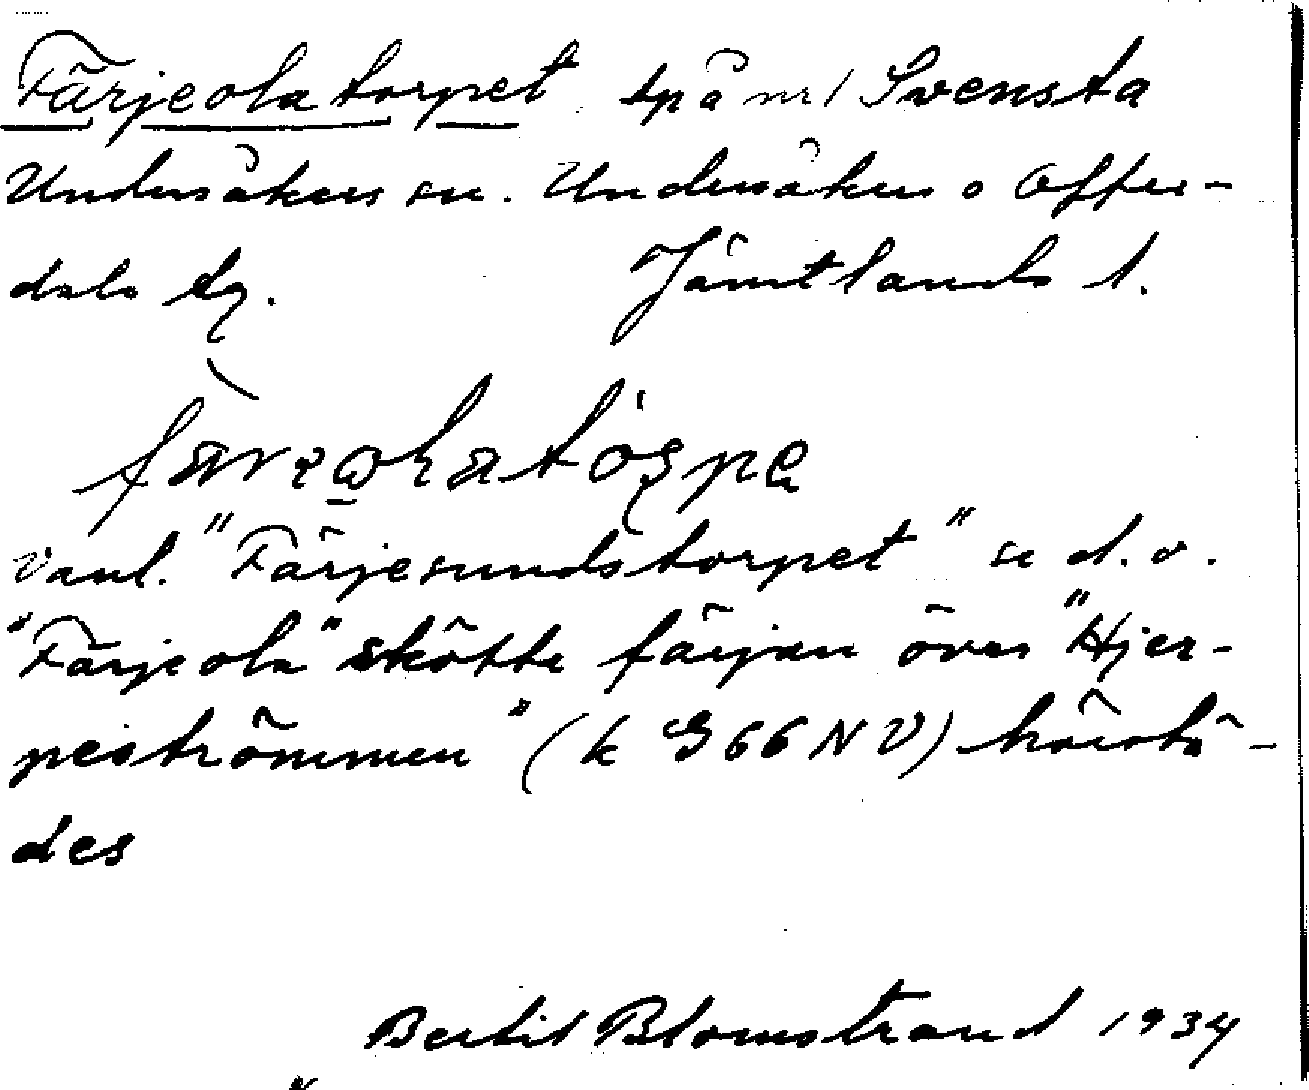 Färjeolatorpet tp å nr 1 Svensta
Undersåkers sn. Undersåkers o Offer-
dals tg. Jämtlands l.
vanl. "Färjesundstorpet" se d. o.
"Färjeola" skötte färjan över "Hjer-
peströmmen" (k G66NV)
des
Bertil Blomstrand 1934